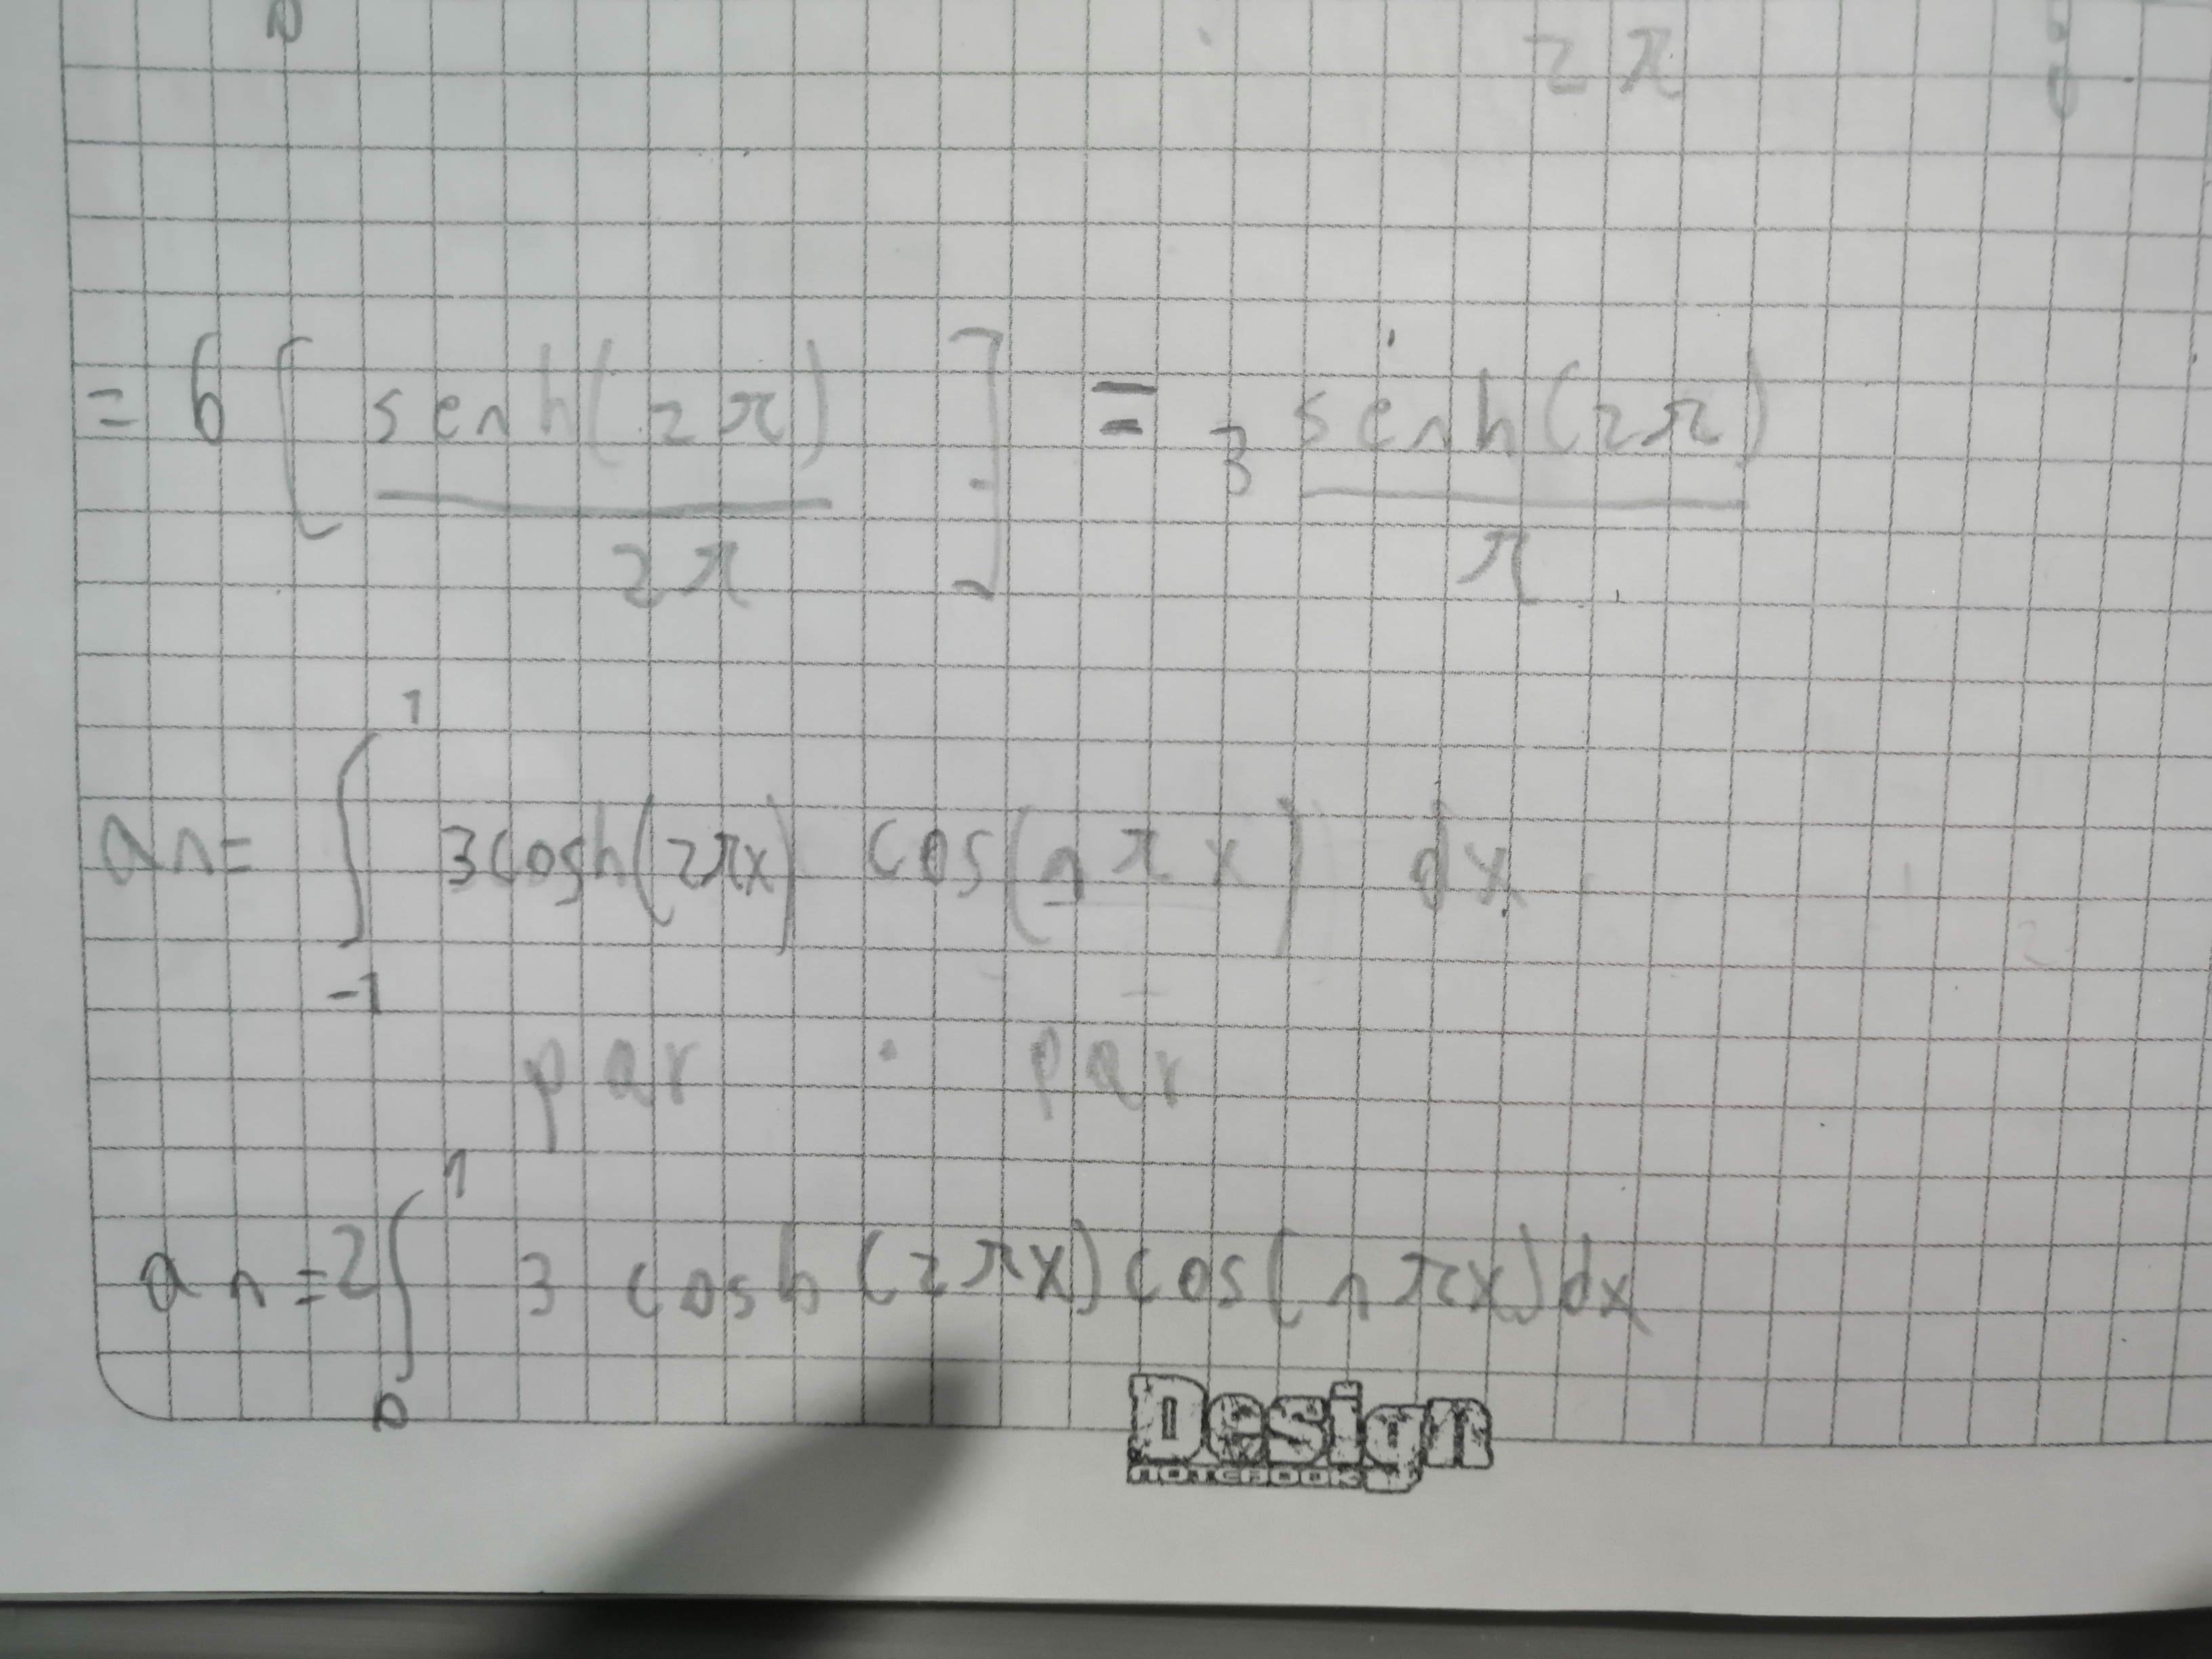 0 2π 0
= 6 [ senh(2π) / 2π ] = 3 senh(2π) / π
an = ∫_{-1}^{1} 3cosh(2πx) cos(nπx) dx
par · par
an = 2 ∫_{0}^{1} 3 cosh(2πx) cos(nπx) dx
Design
NOTEBOOK